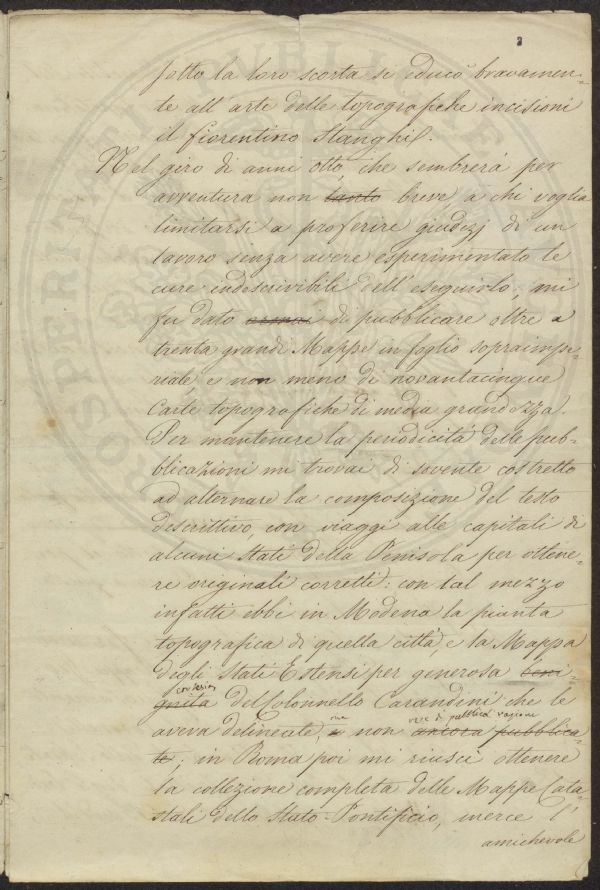 3
sotto la loro scorta si educò bravamen-
te all'arte delle topografiche incisioni
il fiorentino Stanghi.
Nel giro di anni otto, che sembrerà per
avventura non tanto breve, a chi voglia
limitarsi a proferire giudizj di un
lavoro senza avere esperimentato le
cure indescrivibili dell'eseguirlo, mi
fu dato ormai di pubblicare oltre a
trenta grandi Mappe in foglio sopraimpe-
riale, e non meno di novantacinque
Carte topografiche di media grandezza.
Per mantenere la periodicità delle pub-
blicazioni mi trovai di sovente costretto
ad alternare la composizione del testo
descrittivo, con viaggi alle capitali di
alcuni Stati della Penisola per ottene-
re originali corretti: con tal mezzo
infatti ebbi in Modena la pianta
topografica di quella città, e la Mappa
degli Stati Estensi per generosa beni-
gnità del Colonnello Carandini che le
aveva delineate, e non ancora pubblica-
ma rese di pubblica ragione
te; in Roma poi mi riuscì ottenere
la collezione completa delle Mappe Cata-
stali dello Stato-Pontificio, mercè l'
amichevole
PROSPERITATI PUBLICAE